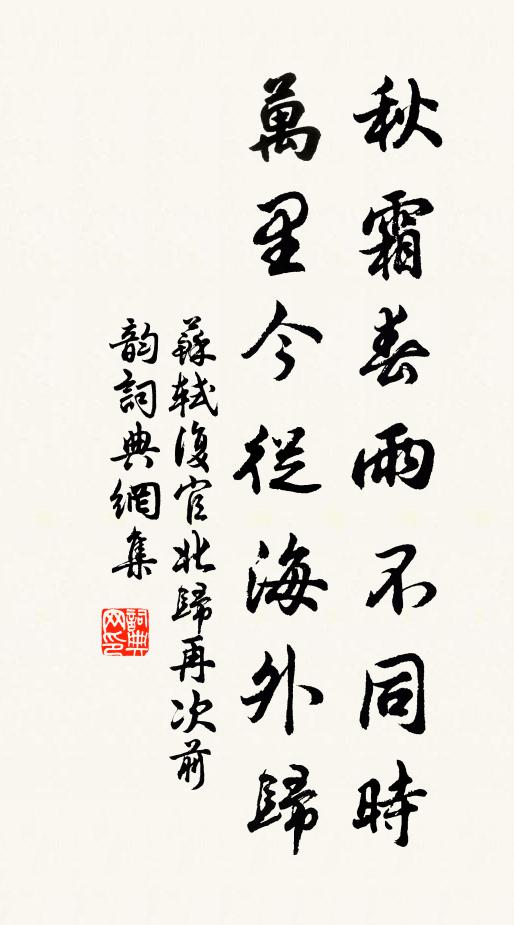 秋霜春雨不同時
萬里今從海外歸
蘇軾復官北歸再次前
韵詞典網集
詞典
网印